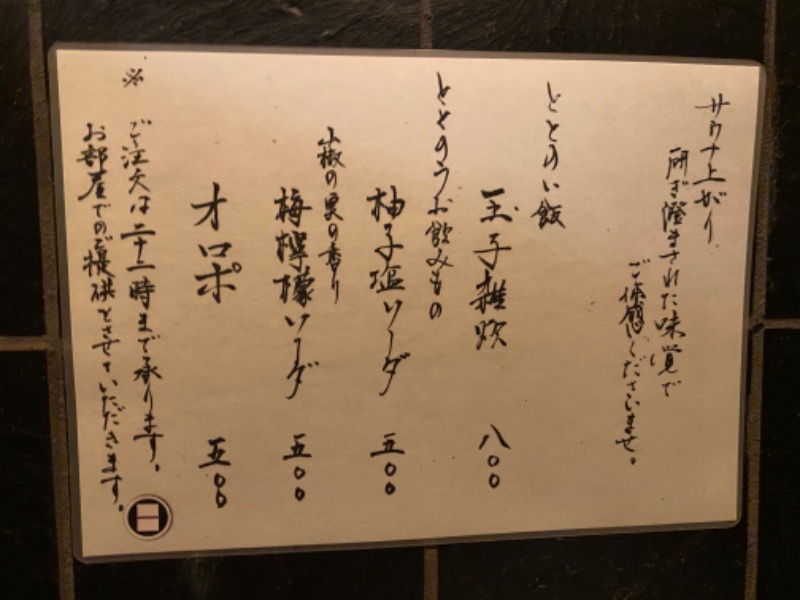 サウナ上がり
研ぎ澄まされた味覚で
ご体感くださいませ。
ととのい飯
玉子雑炊 八〇〇
ととのうお飲みもの
柚子塩ソーダ 五〇〇
山椒の実の香り
梅檸檬ソーダ 五〇〇
オロポ 五〇〇
※ ご注文は二十二時まで承ります。
お部屋でのご提供とさせていただきます。